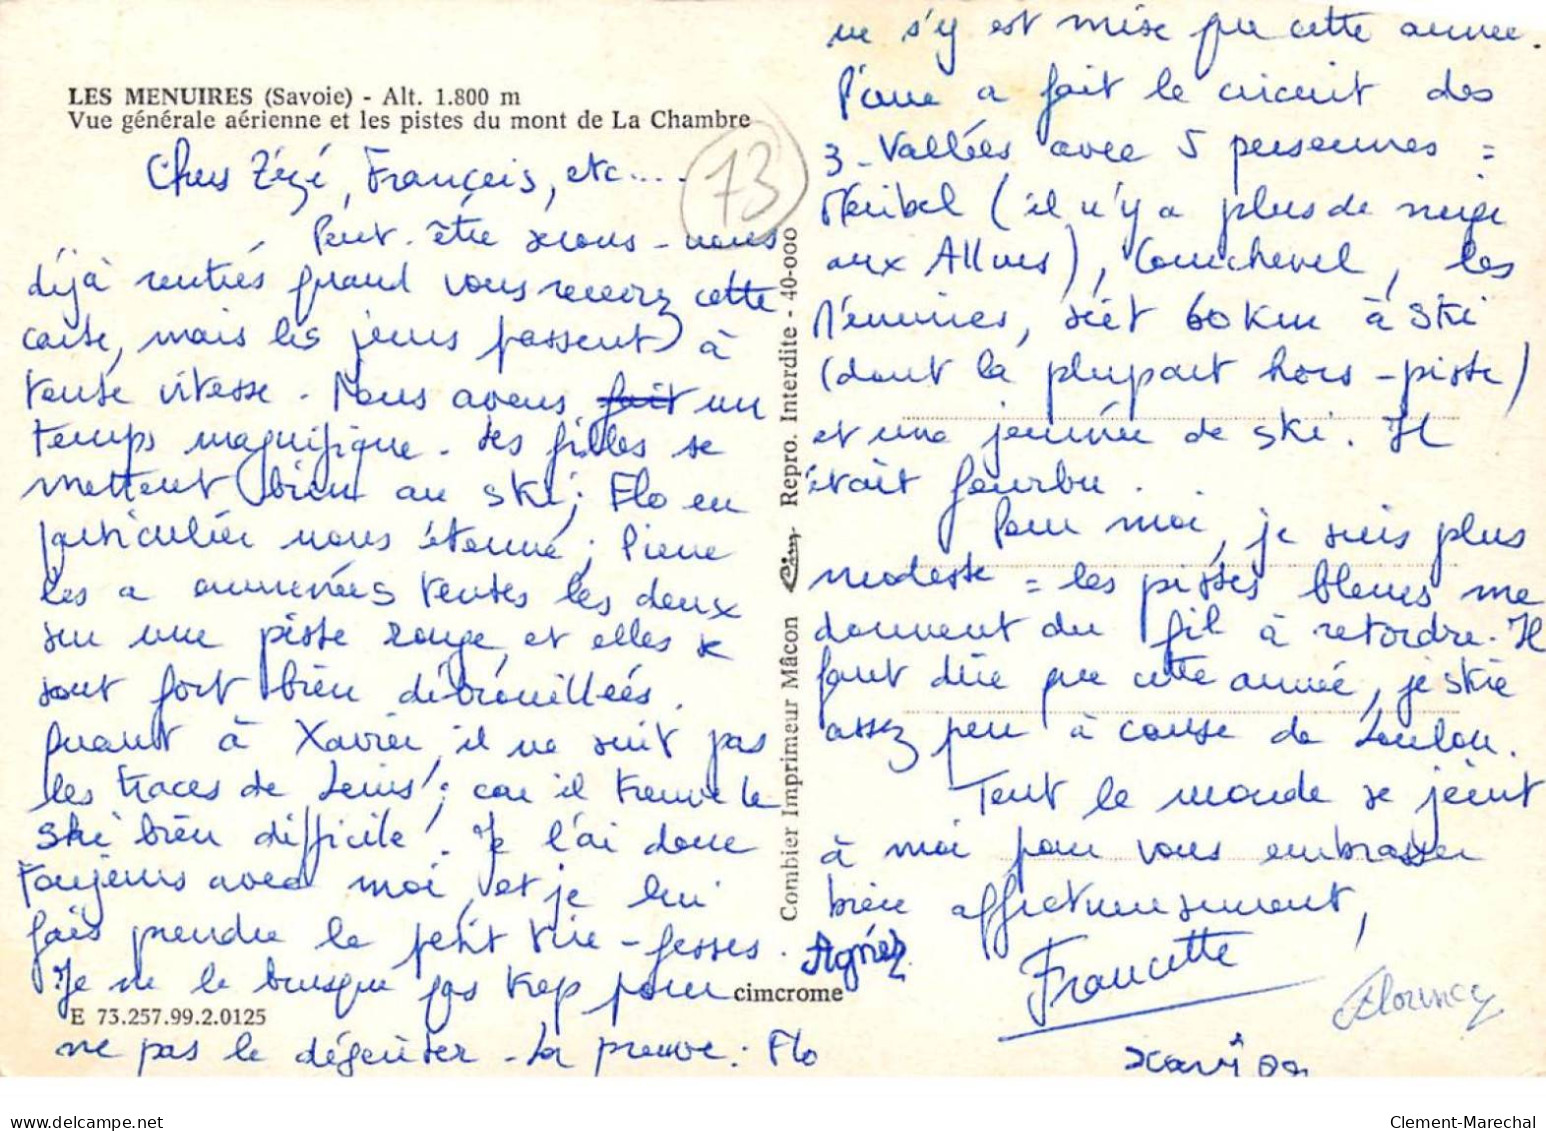 LES MENUIRES (Savoie) - Alt. 1.800 m
Vue générale aérienne et les pistes du mont de La Chambre
73
Chers Zézé, François, etc....
Peut-être serons-nous
déjà rentrés quand vous recevrez cette
carte, mais les jours passent à
toute vitesse. Nous avons fait un
temps magnifique. Les filles se
mettent bien au ski; Flo en
particulier nous étonne; Pierre
les a emmenées toutes les deux
sur une piste rouge, et elles se
sont fort bien débrouillées.
Quant à Xavier, il ne suit pas
les traces de Louis; car il trouve le
ski bien difficile! Je l'ai donc
toujours avec moi, et je lui
fais prendre le petit tire-fesses.
Je ne le brusque pas trop pour
ne pas le dégoûter - La preuve: Flo
E 73.257.99.2.0125
cimcrome
Combier Imprimeur Mâcon Cim Repro. Interdite - 40-000
ne s'y est mise que cette année.
Pierre a fait le circuit des
3 Vallées avec 5 personnes =
Méribel (il n'y a plus de neige
aux Allues), Courchevel, les
Ménuires, soit 60 km à ski
(dont la plupart hors-piste)
et une journée de ski. Il
était fourbu.
Pour moi, je suis plus
modeste = les pistes bleues me
donnent du fil à retordre. Il
faut dire que cette année, je skie
assez peu à cause de Loulou.
Tout le monde se joint
à moi pour vous embrasser
bien affectueusement,
Agnès
Francette
Florence
Xavier
www.delcampe.net
Clement-Marechal